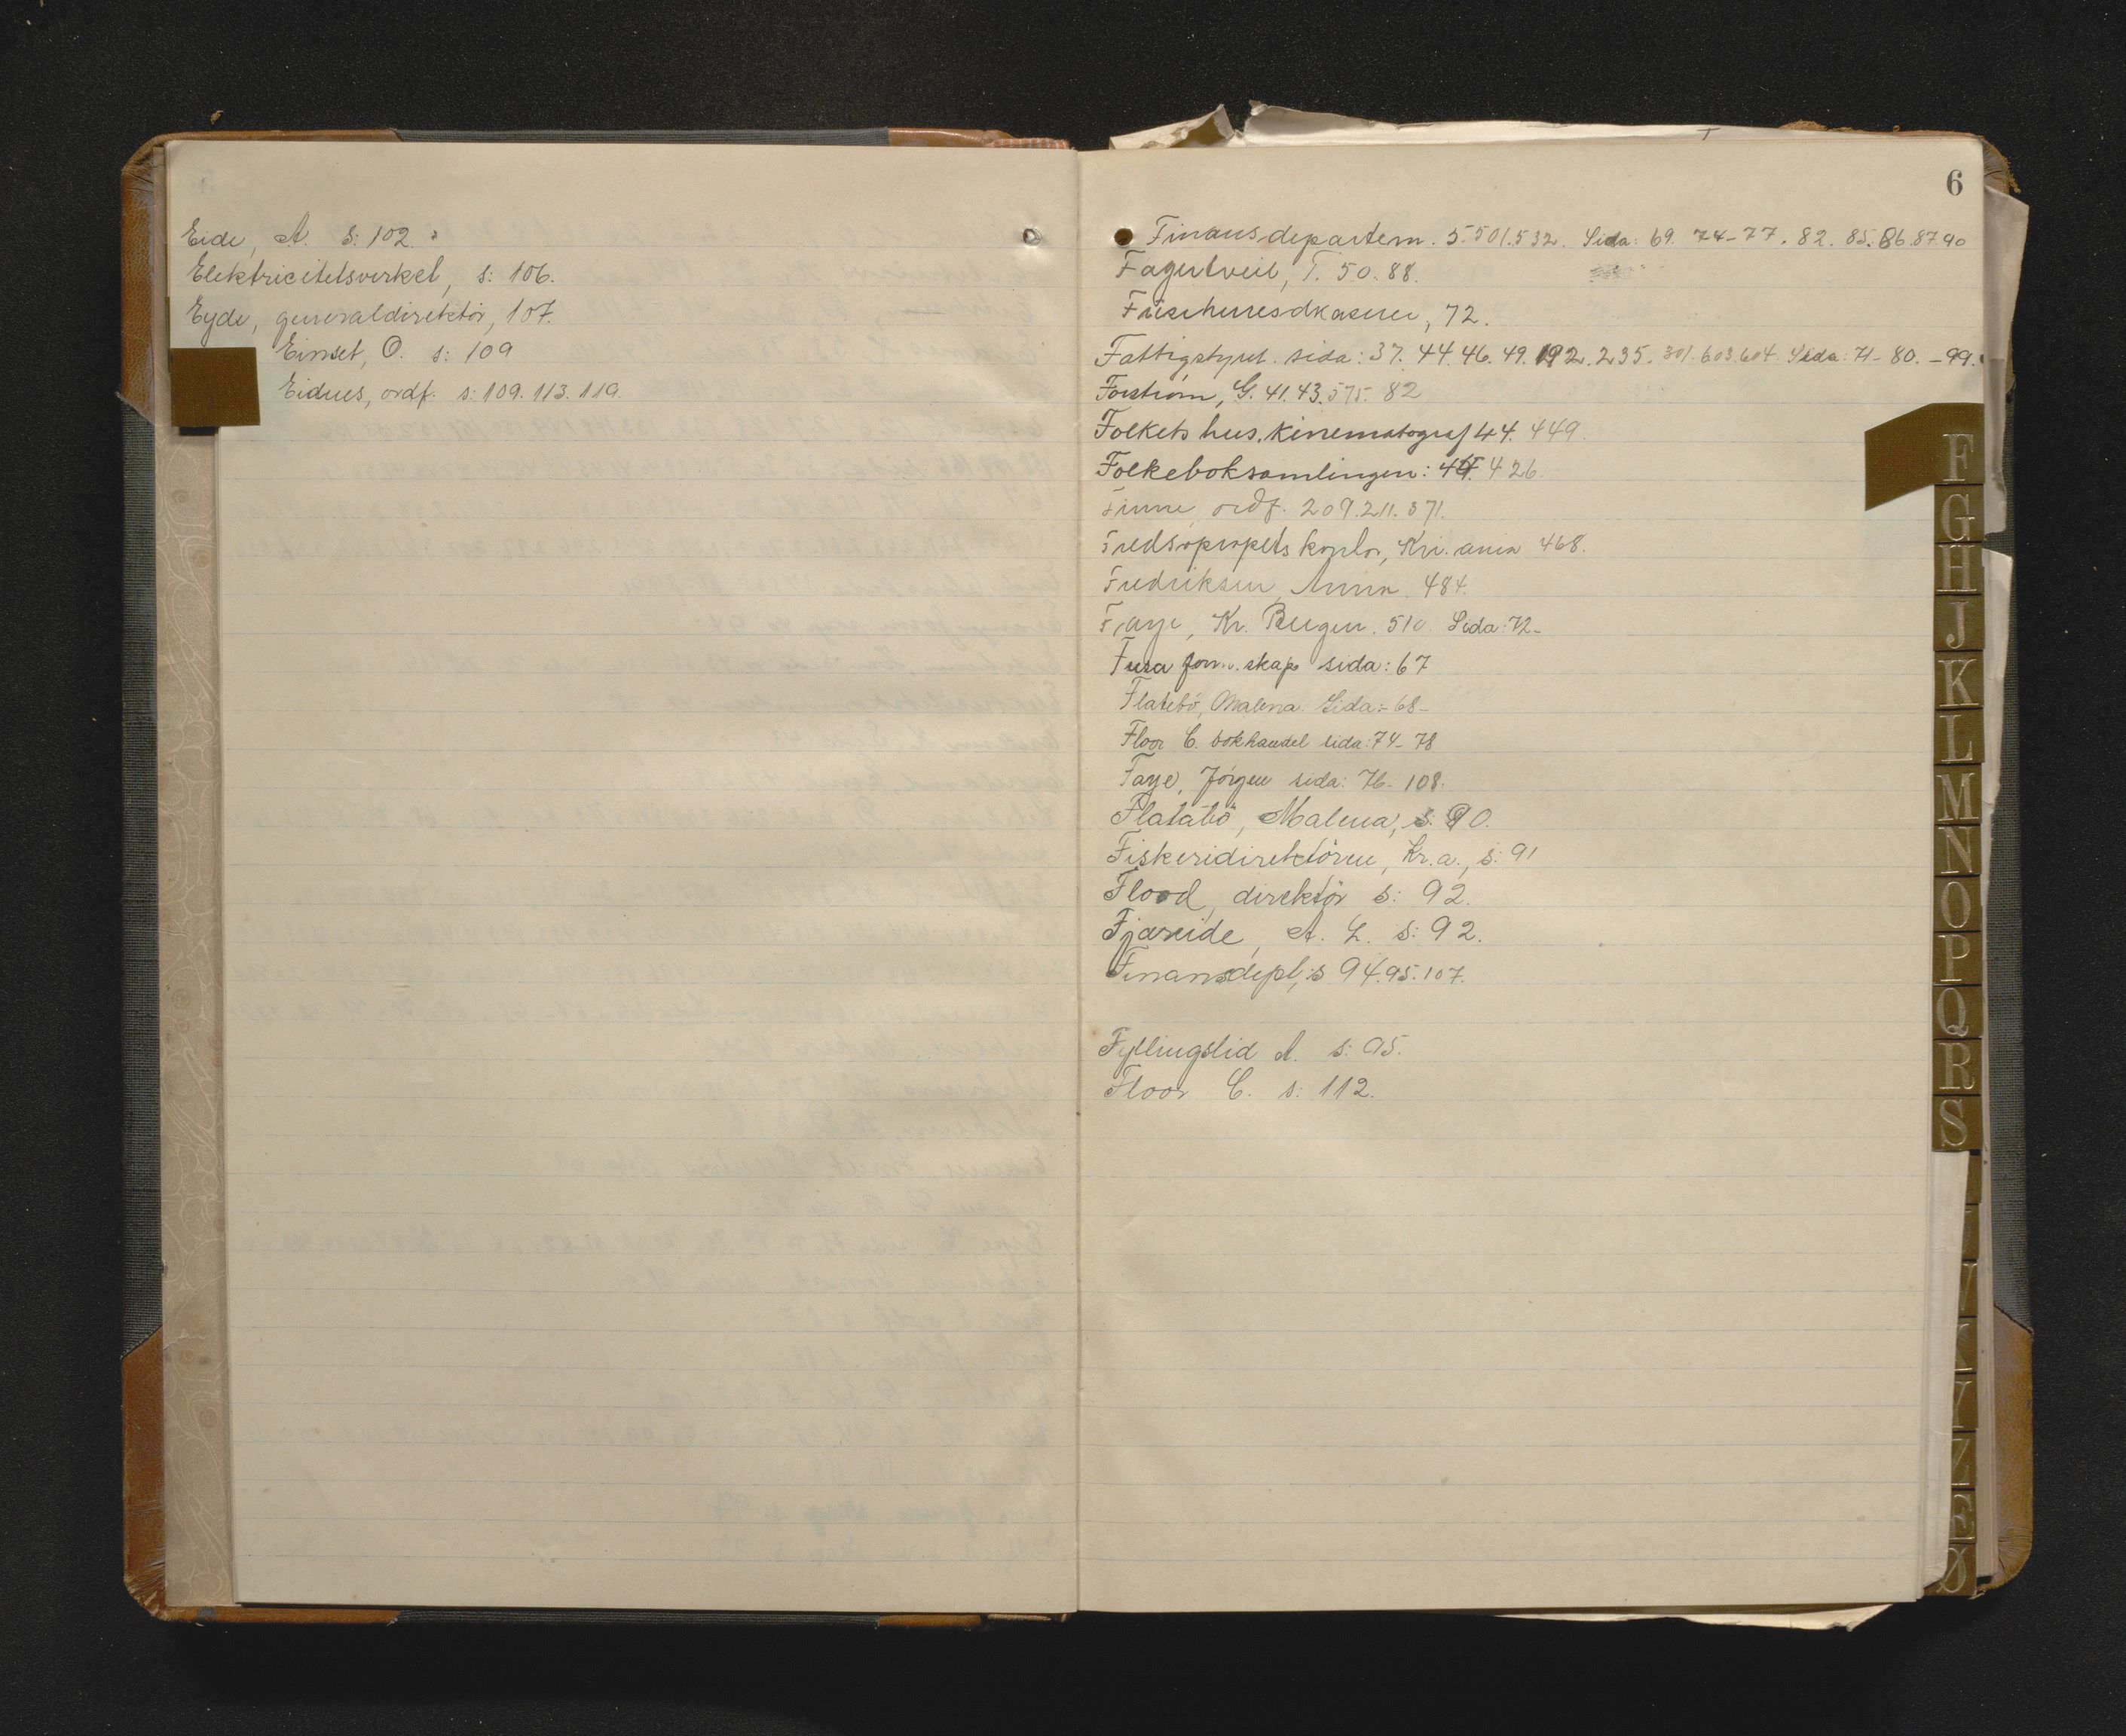 Eide, A. s: 102.
Elektricitetsverket, s: 106.
Eyde, generaldirektör, 107.
Einset, O. s: 109
Eidnes, ordf. s: 109. 113. 119.
6
Finansdepartem. 5. 501. 532. Sida: 69. 74-77. 82. 85. 86. 87. 90
Fagertveit, T. 50. 88.
72.
Fattigstyret. sida: 37. 44. 46. 49. 192. 235. 301. 603 604. Sida: 71- 80. -99.
Forström, G. 41. 43. 575. 82
Folkets hus. kinematograf 44. 449.
Folkeboksamlingen: 426.
Finne, ordf. 209. 211. 371.
kontor, Kri.ania 468.
Fredriksen, Anna. 484.
Faye, Kr. Bergen. 510. Sida: 72-
Fusa form.skap sida: 67
Flatebö, Malena. Sida:- 68-
Floor C. bokhandel sida: 74- 78
Faye, Jörgen sida: 76- 108.
Flatabö, Malena, s. 90.
Fiskeridirektören, Kr.a., s: 91
Flood, direktör s: 92.
Fjæreide, A. L. s: 92.
Finansdept, s 94. 95. 107.
Fyllingslid A. s: 95.
Floor C. s: 112.
F
G
H
J
K
L
M
N
O
P
Q
R
S
Y
Z
Ø